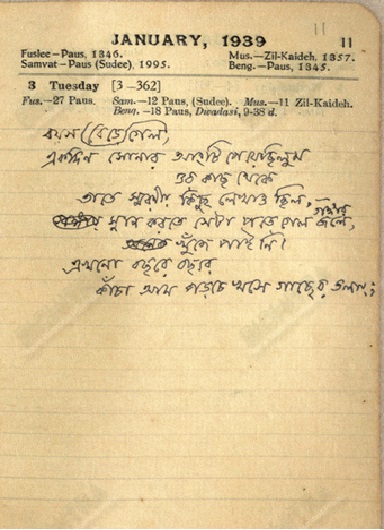 11
JANUARY, 1939 11
Fuslee—Paus, 1346. Mus.—Zil-Kaideh, 1357.
Samvat—Paus (Sudee), 1995. Beng.—Paus, 1345.
3 Tuesday [3—362]
Fus.—27 Paus. Sam.—12 Paus, (Sudee). Mus.—11 Zil-Kaideh.
Beng.—18 Paus, Dwadasi, 9-38 d.
বয়স (বেড়ে গেল)
একদিন সোনার আংটি পেয়েছিলুম
ওর কাছ থেকে
তাতে স্মরণীয় কিছু লেখাও ছিল,
স্নান করতে সেটা পড়ে গেল জলে,
খুঁজে পাই নি।
এখনো বছরে বছরে
কাঁচা আম পড়চে খসে গাছের তলায়,